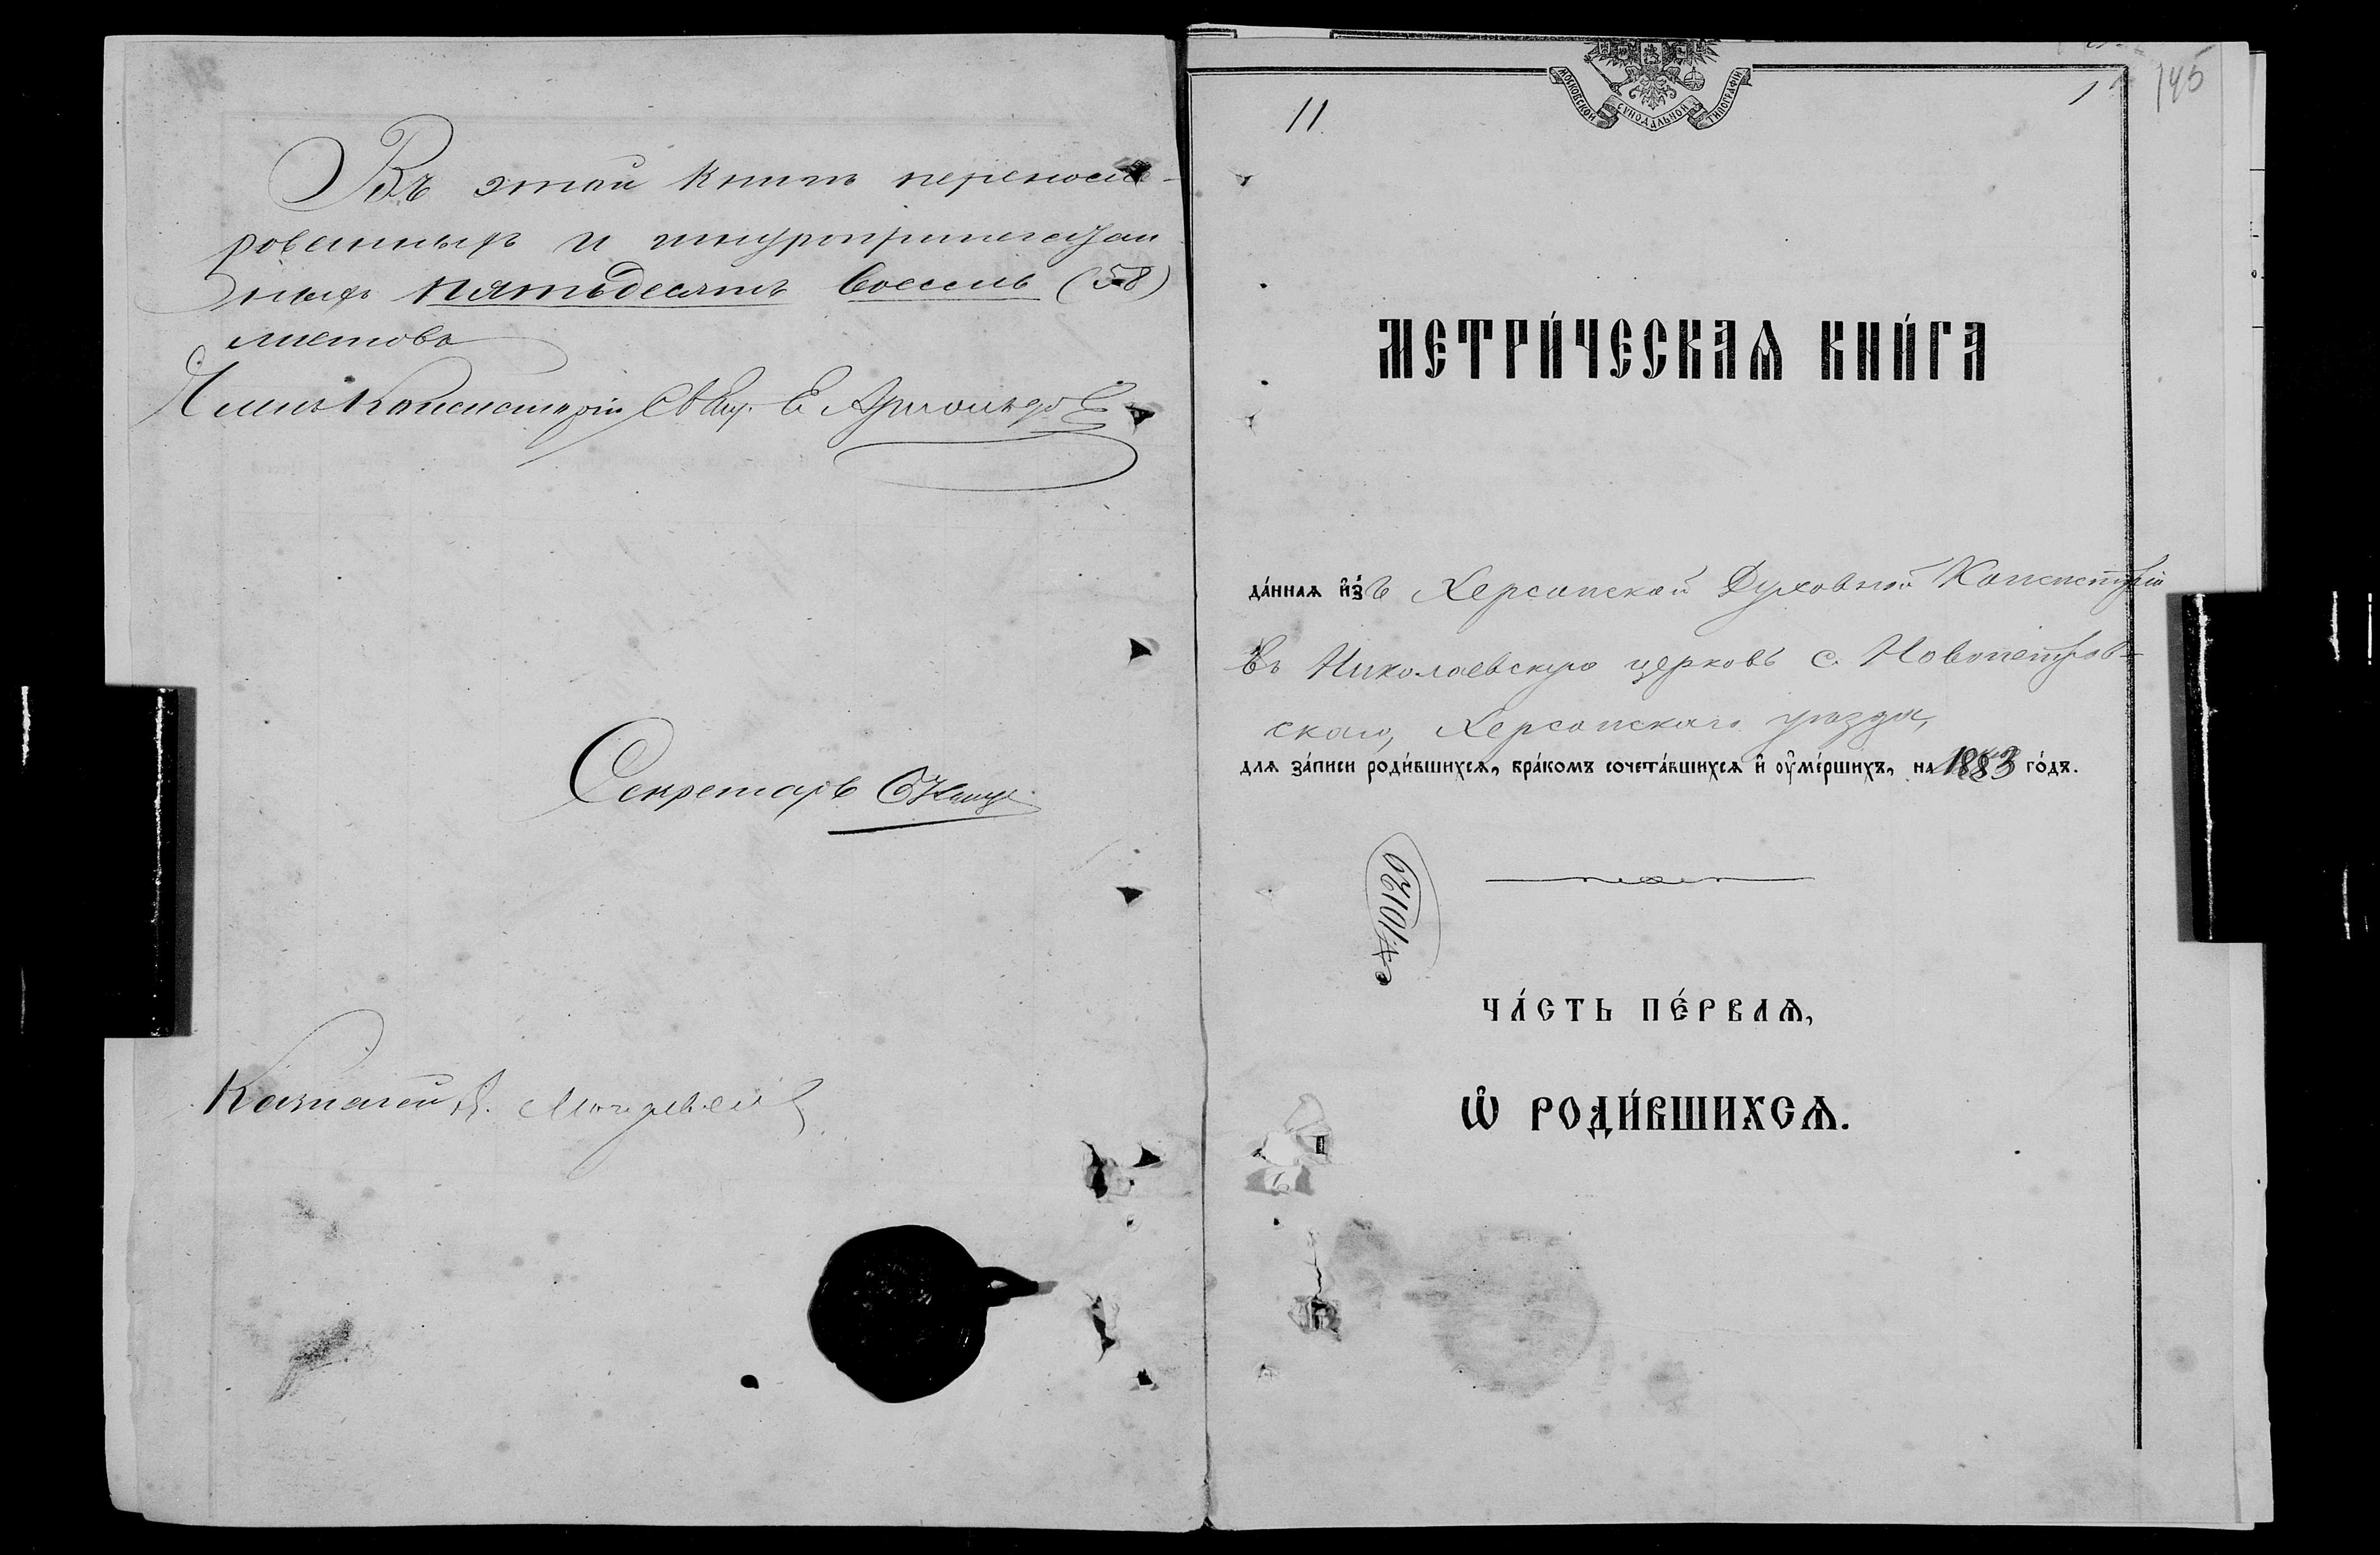 Въ этой книгѣ перенуме-
рованныхъ и шнуроприпечатан
ныхъ пятьдесятъ восемь (58)
листовъ
Членъ Консисторіи Свящ. Е. Арнольдовъ
Секретарь
Казначей
145
1
11.
МОСКОВСКОЙ СѴНОДАЛЬНОЙ ТИПОГРАФІИ
МЕТРИ́ЧЕСКАѦ КНИ́ГА
да́ннаѧ и҆зъ Херсонской Духовной Консисторіи
въ Николаевскую церковь с. Новопетров-
скаго, Херсонскаго уѣзда,
для за́писи роди́вшихсѧ, бра́комъ сочета́вшихсѧ и҆ оу҆ме́ршихъ, на 1883 го́дъ.
№ 10120
ЧА́СТЬ ПЕ́РВАѦ,
Ѡ҆ РОДИ́ВШИХСѦ.